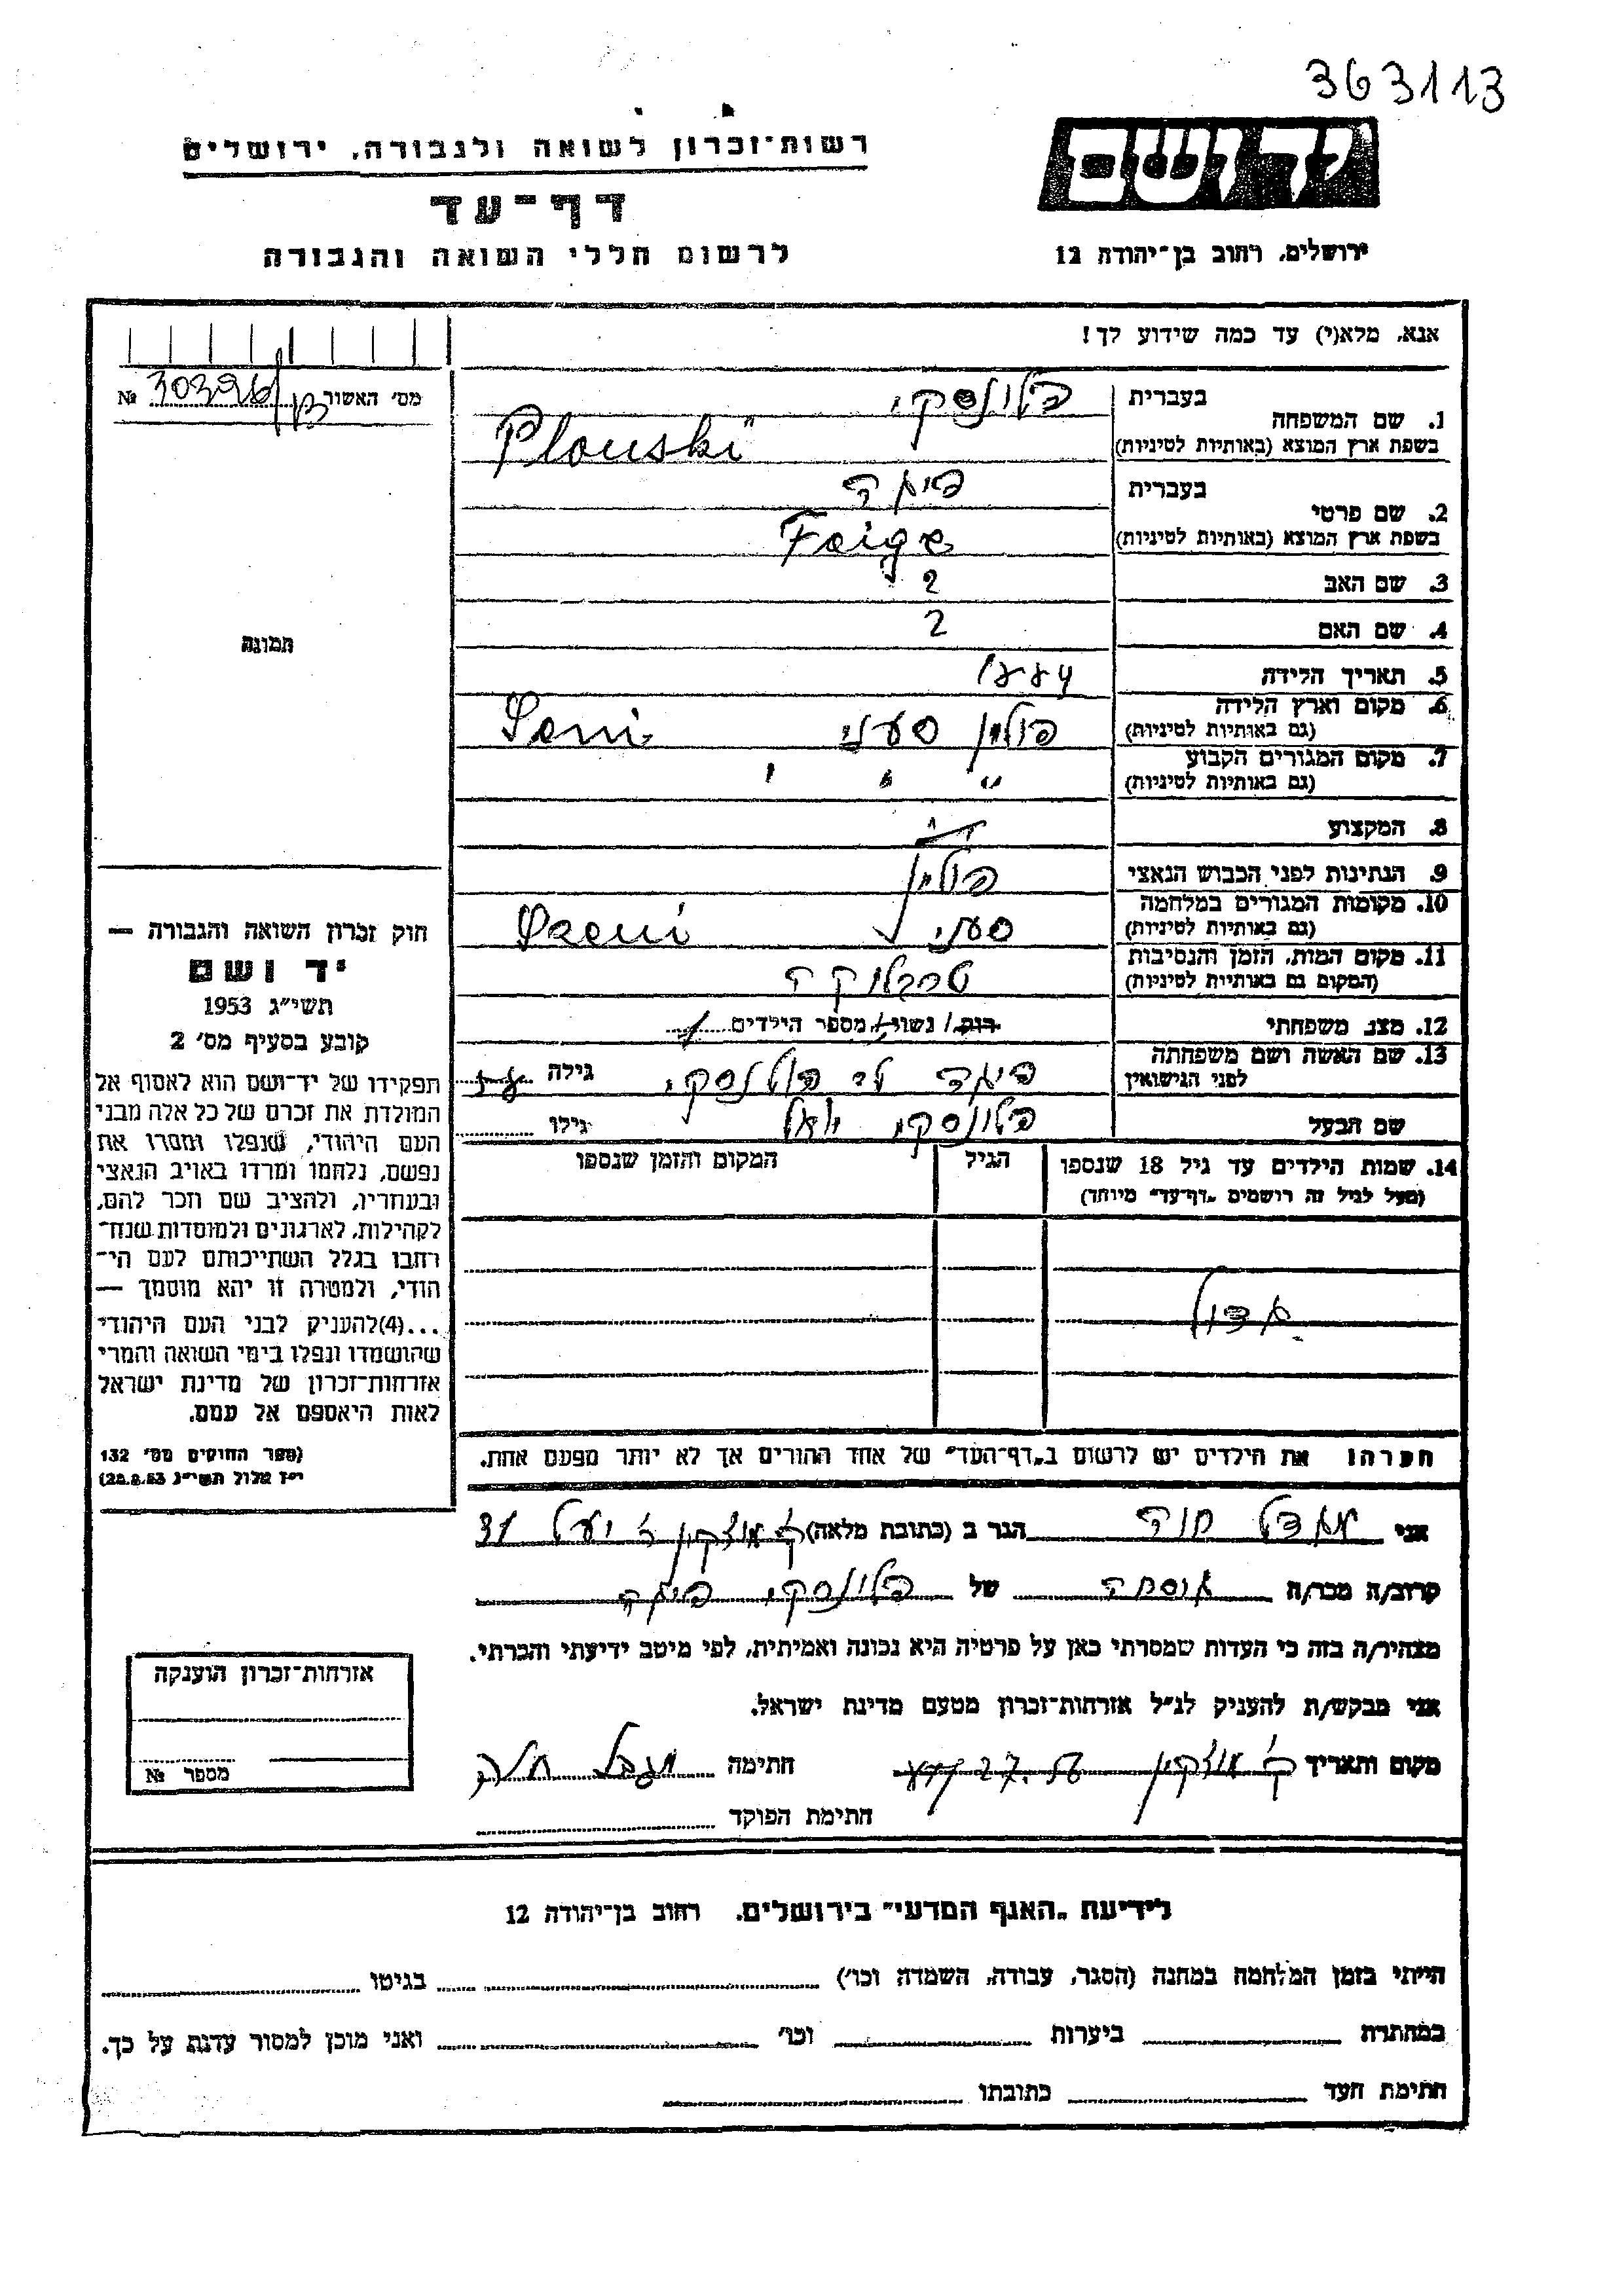 363113
יד ושם
רשות־זכרון לשואה ולגבורה, ירושלים
דף־עד
ירושלים, רחוב בן־יהודה 12
לרשום חללי השואה והגבורה
אנא, מלא(י) עד כמה שידוע לך!
מס׳ האשור № 30396
בעברית
1. שם המשפחה
בשפת ארץ המוצא (באותיות לטיניות)
פלונסקי
Plonski
בעברית
2. שם פרטי
בשפת ארץ המוצא (באותיות לטיניות)
פיגה
Feige
3. שם האב ?
4. שם האם ?
5. תאריך הלידה 1884
6. מקום וארץ הלידה
(גם באותיות לטיניות)
פולין
7. מקום המגורים הקבוע
(גם באותיות לטיניות)
" " "
8. המקצוע
9. הנתינות לפני הכבוש הנאצי פולין
10. מקומות המגורים במלחמה
(גם באותיות לטיניות)
11. מקום המות, הזמן והנסיבות
(המקום גם באותיות לטיניות)
טרבלינקה
12. מצב משפחתי רווק/ נשוי/ מספר הילדים
13. שם האשה ושם משפחתה
לפני הנישואין
פיגה גילה
שם הבעל פלונסקי יואל גילו
14. שמות הילדים עד גיל 18 שנספו
(מעל לגיל זה רושמים „דף־עד” מיוחד)
הגיל
המקום והזמן שנספו
הערה: את הילדים יש לרשום ב„דף־העד” של אחד ההורים אך לא יותר מפעם אחת.
תמונה
חוק זכרון השואה והגבורה —
יד ושם
תשי״ג 1953
קובע בסעיף מס׳ 2
תפקידו של יד־ושם הוא לאסוף אל
המולדת את זכרם של כל אלה מבני
העם היהודי, שנפלו ומסרו את
נפשם, נלחמו ומרדו באויב הנאצי
ובעוזריו, ולהציב שם וזכר להם,
לקהילות, לארגונים ולמוסדות שנח־
רבו בגלל השתייכותם לעם הי־
הודי, ולמטרה זו יהא מוסמך —
...(4)להעניק לבני העם היהודי
שהושמדו ונפלו בימי השואה והמרי
אזרחות־זכרון של מדינת ישראל
לאות היאספם אל עמם.
(ספר החוקים מס׳ 132
י״ז אלול תשי״ג 28.8.53)
אני חוה הגר ב (כתובת מלאה) ק׳ מוצקין 31
קרוב/ה מכר/ה של פלונסקי פיגה
מצהיר/ה בזה כי העדות שמסרתי כאן על פרטיה היא נכונה ואמיתית, לפי מיטב ידיעתי והכרתי.
אני מבקש/ת להעניק לנ״ל אזרחות־זכרון מטעם מדינת ישראל.
מקום ותאריך ק׳ מוצקין חתימה
חתימת הפוקד
אזרחות־זכרון הוענקה
מספר №
לידיעת „האגף המדעי” בירושלים. רחוב בן־יהודה 12
הייתי בזמן המלחמה במחנה (הסגר, עבודה, השמדה וכו׳) בגיטו
במחתרת ביערות וכו׳ ואני מוכן למסור עדות על כך.
חתימת העד כתובתו